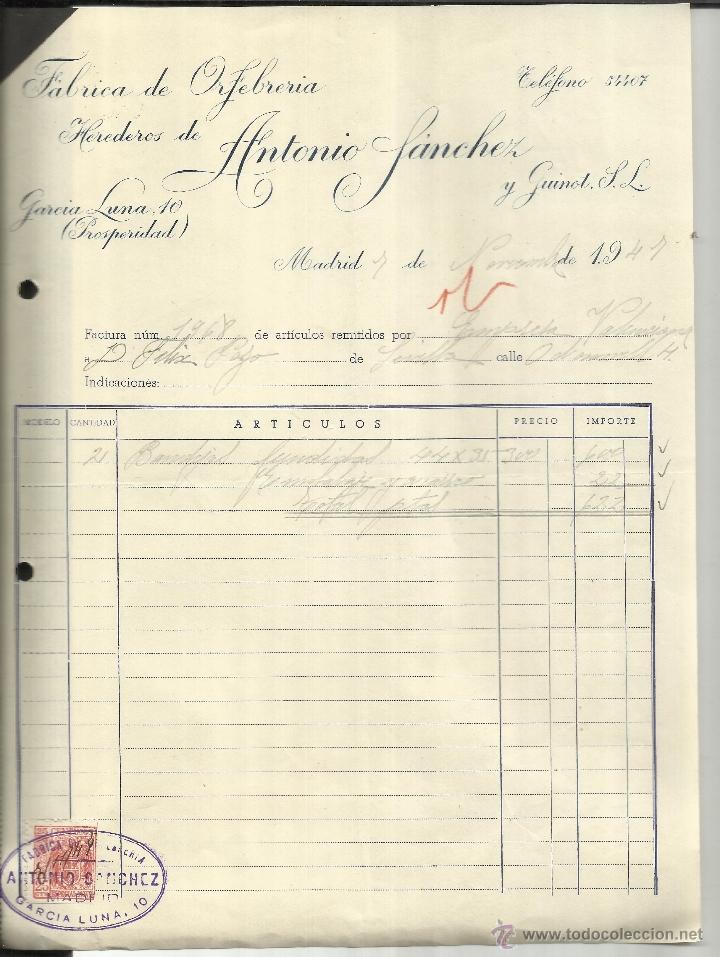 Fábrica de Orfebreria
Teléfono 54407
Herederos de
Antonio Sánchez
y Guinot, S.L.
Garcia Luna, 10
(Prosperidad)
Madrid 7 de Noviembre de 1947
Factura núm. 1968 de artículos remitidos por Empresa Valenciana
a D. Felix Pozo de Sevilla calle 4
Indicaciones:
MODELO CANTIDAD ARTICULOS PRECIO IMPORTE
2 44 x 35 300 600
22
total 622
FABRICA
ANTONIO SANCHEZ
MADRID
GARCIA LUNA, 10
© www.todocoleccion.net